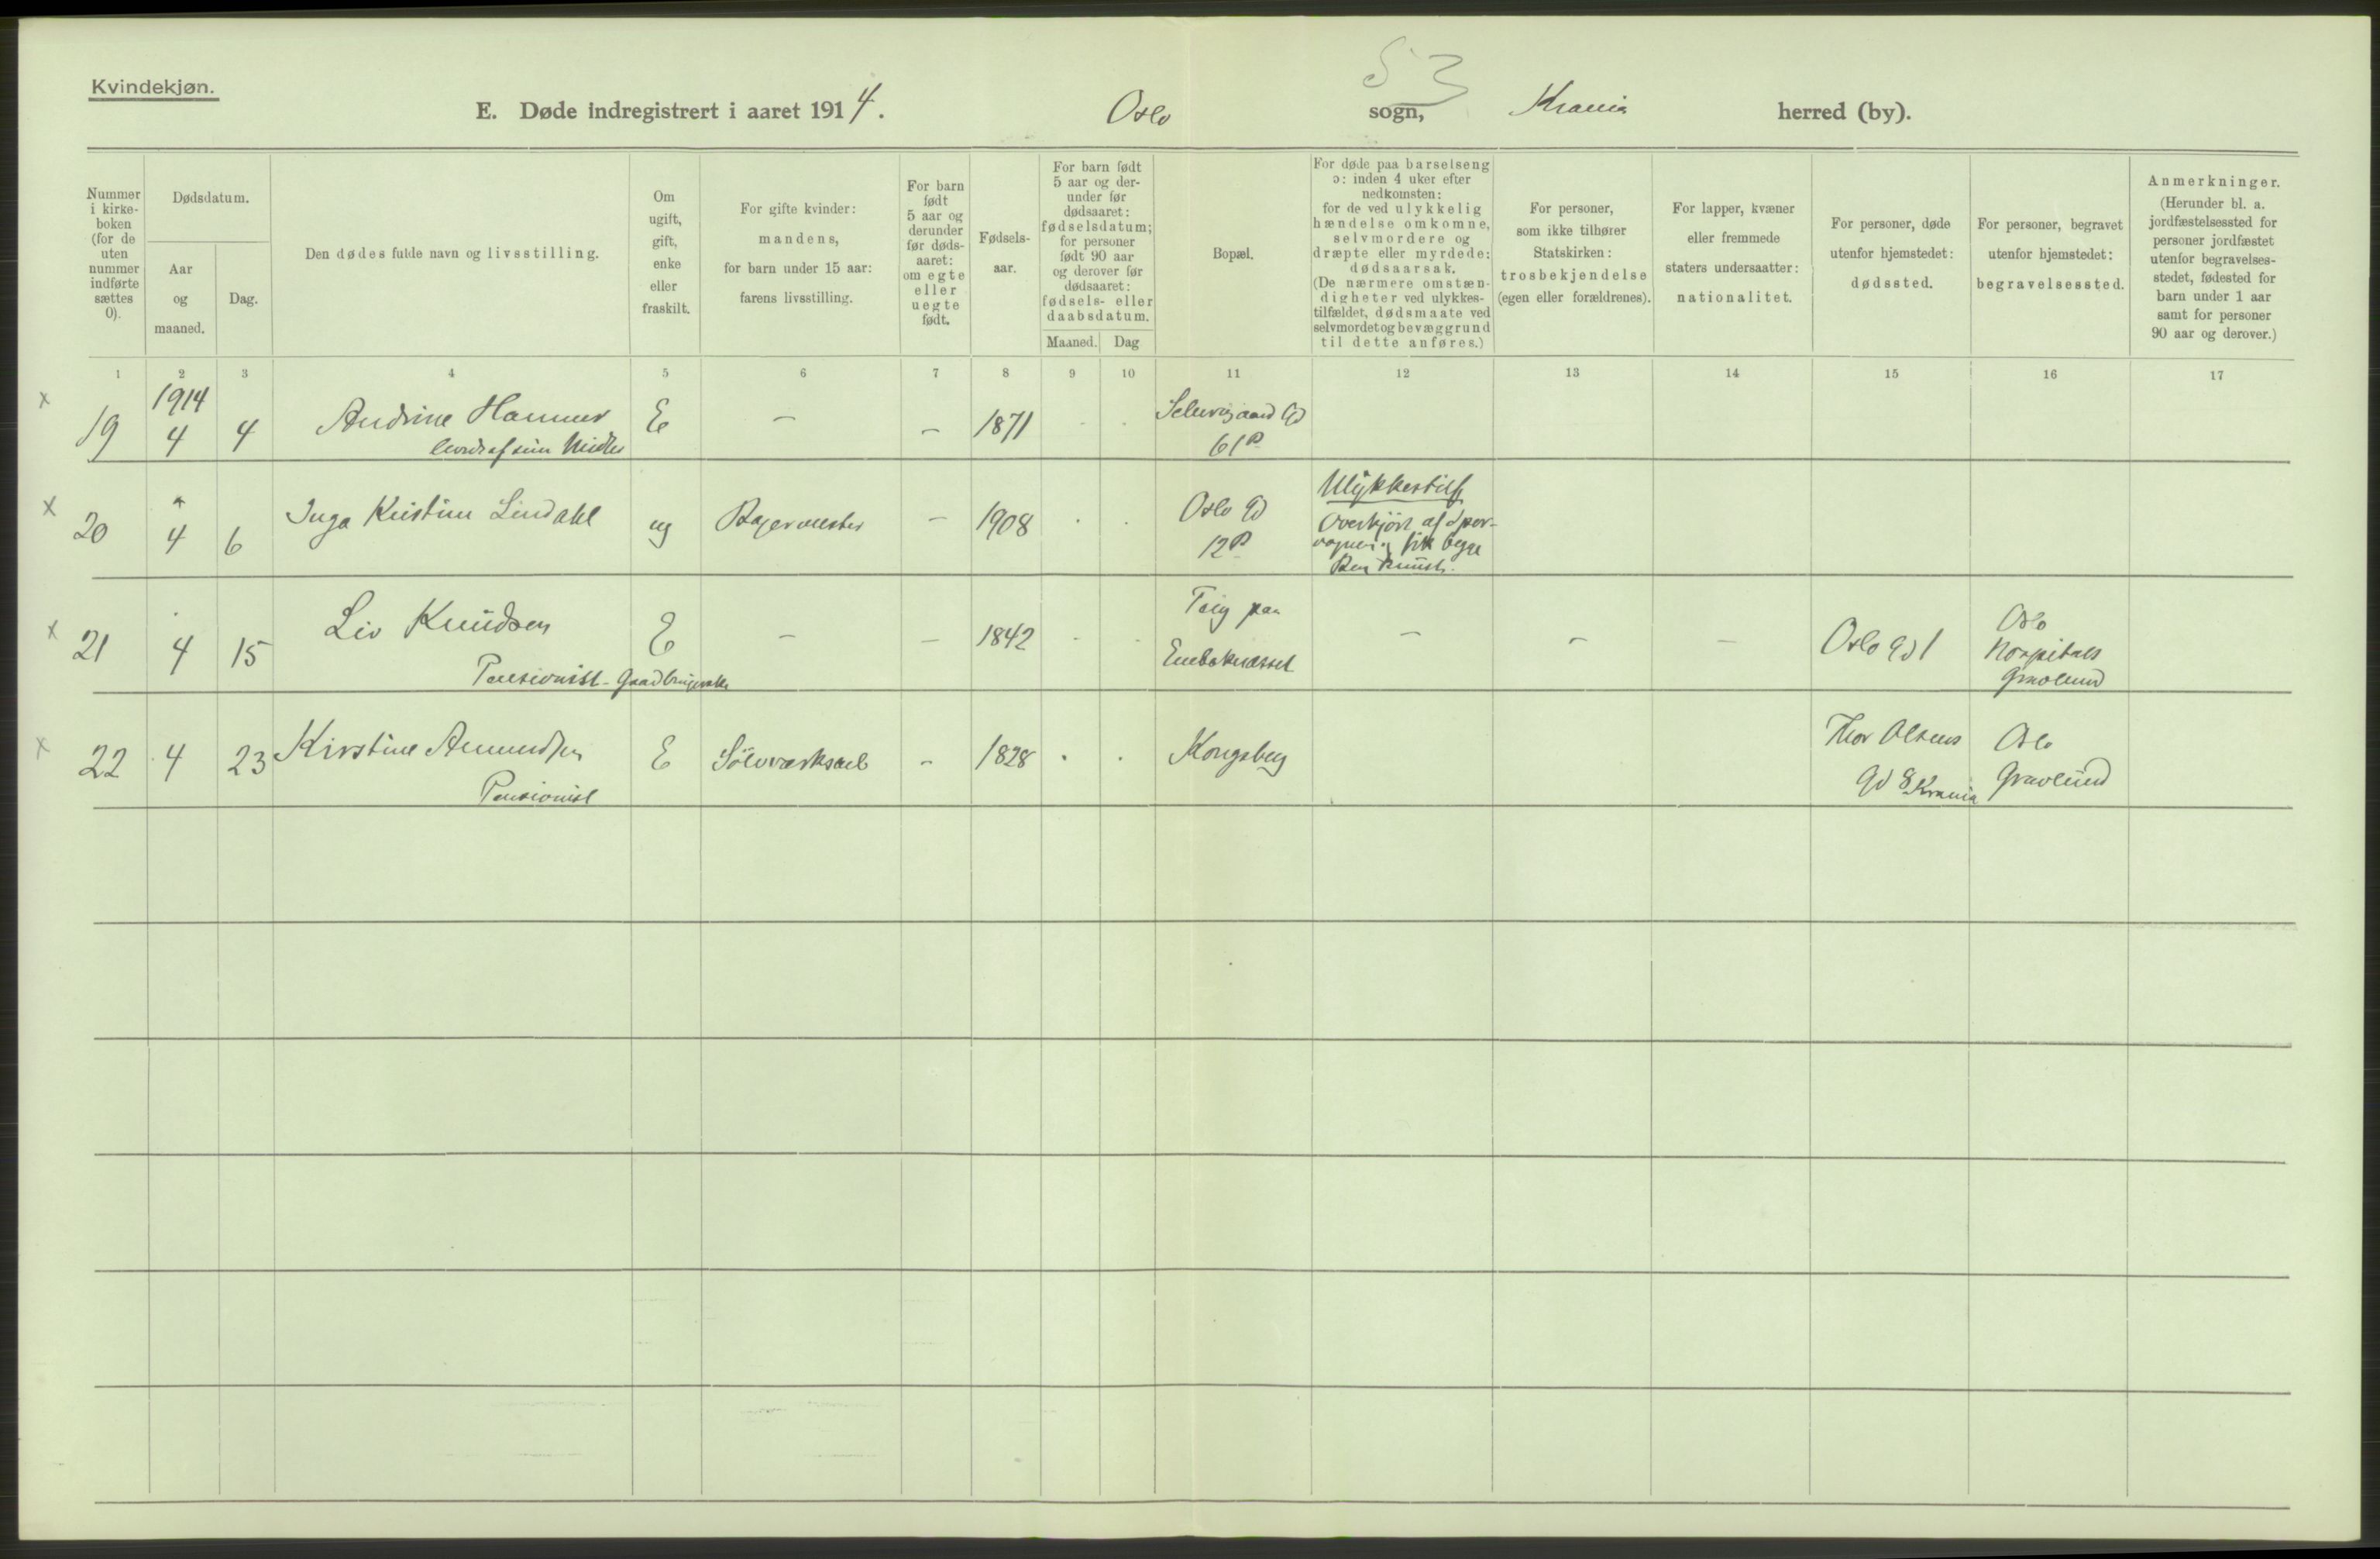 53
Kvindekjøn.
E. Døde indregistrert i aaret 1914. Oslo sogn, Krania herred (by).
Nummer i kirke- boken (for de uten nummer indførte sættes 0).
Dødsdatum.
Aar og maaned.
Dag.
Den dødes fulde navn og livsstilling.
Om ugift, gift, enke eller fraskilt.
For gifte kvinder: mandens, for barn under 15 aar: farens livsstilling.
For barn født 5 aar og derunder før døds- aaret: om egte eller uegte født.
Fødsels- aar.
For barn født 5 aar og der- under før dødsaaret: fødselsdatum; for personer født 90 aar og derover før dødsaaret: fødsels- eller daabsdatum.
Maaned. Dag
Bopæl.
For døde paa barselseng ɔ: inden 4 uker efter nedkomsten: for de ved ulykkelig hændelse omkomne, selvmordere og dræpte eller myrdede: dødsaarsak. (De nærmere omstæn- digheter ved ulykkes- tilfældet, dødsmaate ved selvmordet og bevæggrund til dette anføres.)
For personer, som ikke tilhører Statskirken: trosbekjendelse (egen eller forældrenes).
For lapper, kvæner eller fremmede staters undersaatter: nationalitet.
For personer, døde utenfor hjemstedet: dødssted.
For personer, begravet utenfor hjemstedet: begravelsessted.
Anmerkninger. (Herunder bl. a. jordfæstelsessted for personer jordfæstet utenfor begravelses- stedet, fødested for barn under 1 aar samt for personer 90 aar og derover.)
1 2 3 4 5 6 7 8 9 10 11 12 13 14 15 16 17
x 19 1914 4 4 Andrine Hammer E – – 1871 Gd
61 Midler
x 20 4 6 Inga Kristine Lindahl ug Bagermester – 1908 Oslo Gd 12 Ulykkestilf
Overkjørt af Spor-
vognen og fik begge
Ben knust.
x 21 4 15 Liv Knudsen E – – 1842 paa – – – Oslo Gd 1 Oslo
Hospitals
Gravlund
Pensionist
x 22 4 23 Kirstine Amundsen E Sølvværksarb – 1828 Kongsberg Thor Olsens Oslo
Pensionist Gd 8 Krania Gravlund